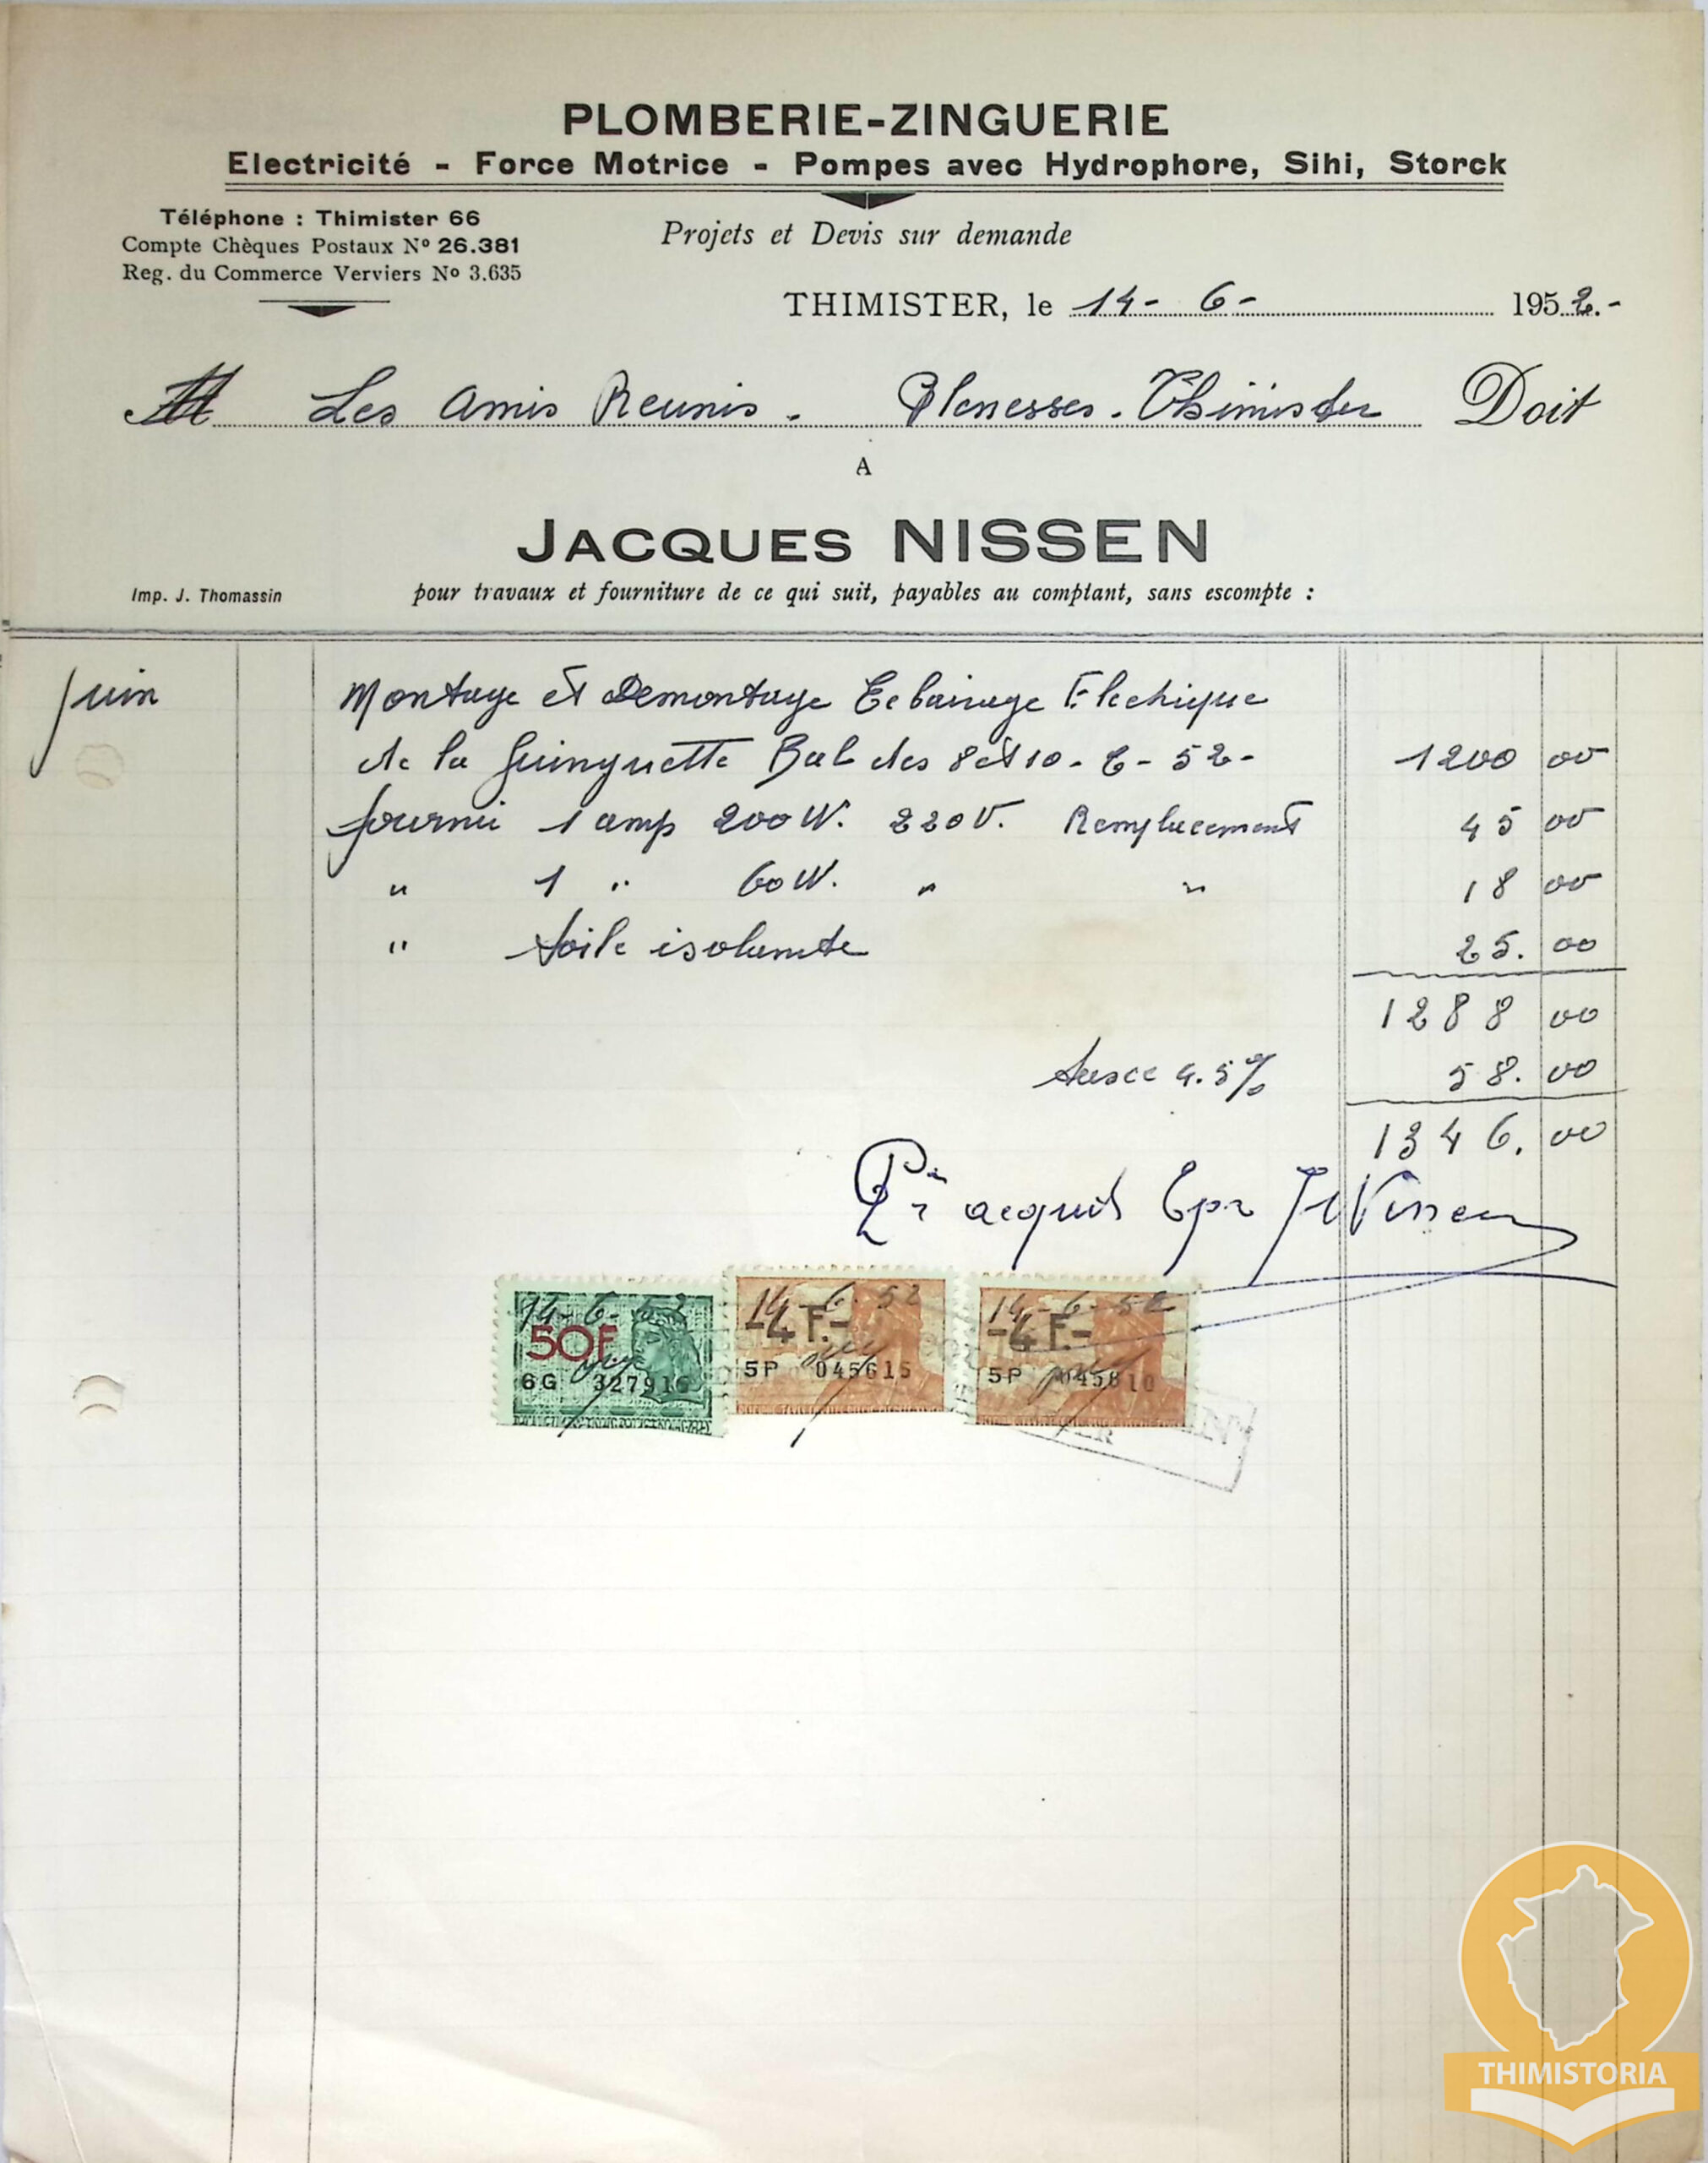 PLOMBERIE-ZINGUERIE
Electricité - Force Motrice - Pompes avec Hydrophore, Sihi, Storck
Téléphone : Thimister 66
Compte Chèques Postaux Nº 26.381
Reg. du Commerce Verviers Nº 3.635
Projets et Devis sur demande
THIMISTER, le 14- 6- 1952.-
M Les Amis Reunis. Elsnesses. Thimister Doit
A
JACQUES NISSEN
Imp. J. Thomassin
pour travaux et fourniture de ce qui suit, payables au comptant, sans escompte :
Juin Montage et Demontage Eclairage Electrique
de la Guinguette Bal des 8 et 10-6-52- 1200 00
fourni 1 amp 200 W. 220 V. Remplacement 45 00
" 1 " 60 W. " " 18 00
" toile isolante 25. 00
1288 00
taxe 4.5% 58. 00
1346. 00
Pr acquit Epr J Nissen
14-6-52 14-6-52 14-6-52
50F -4F.- -4F.-
6G 327916 5P 045615 5P 045610
THIMISTORIA